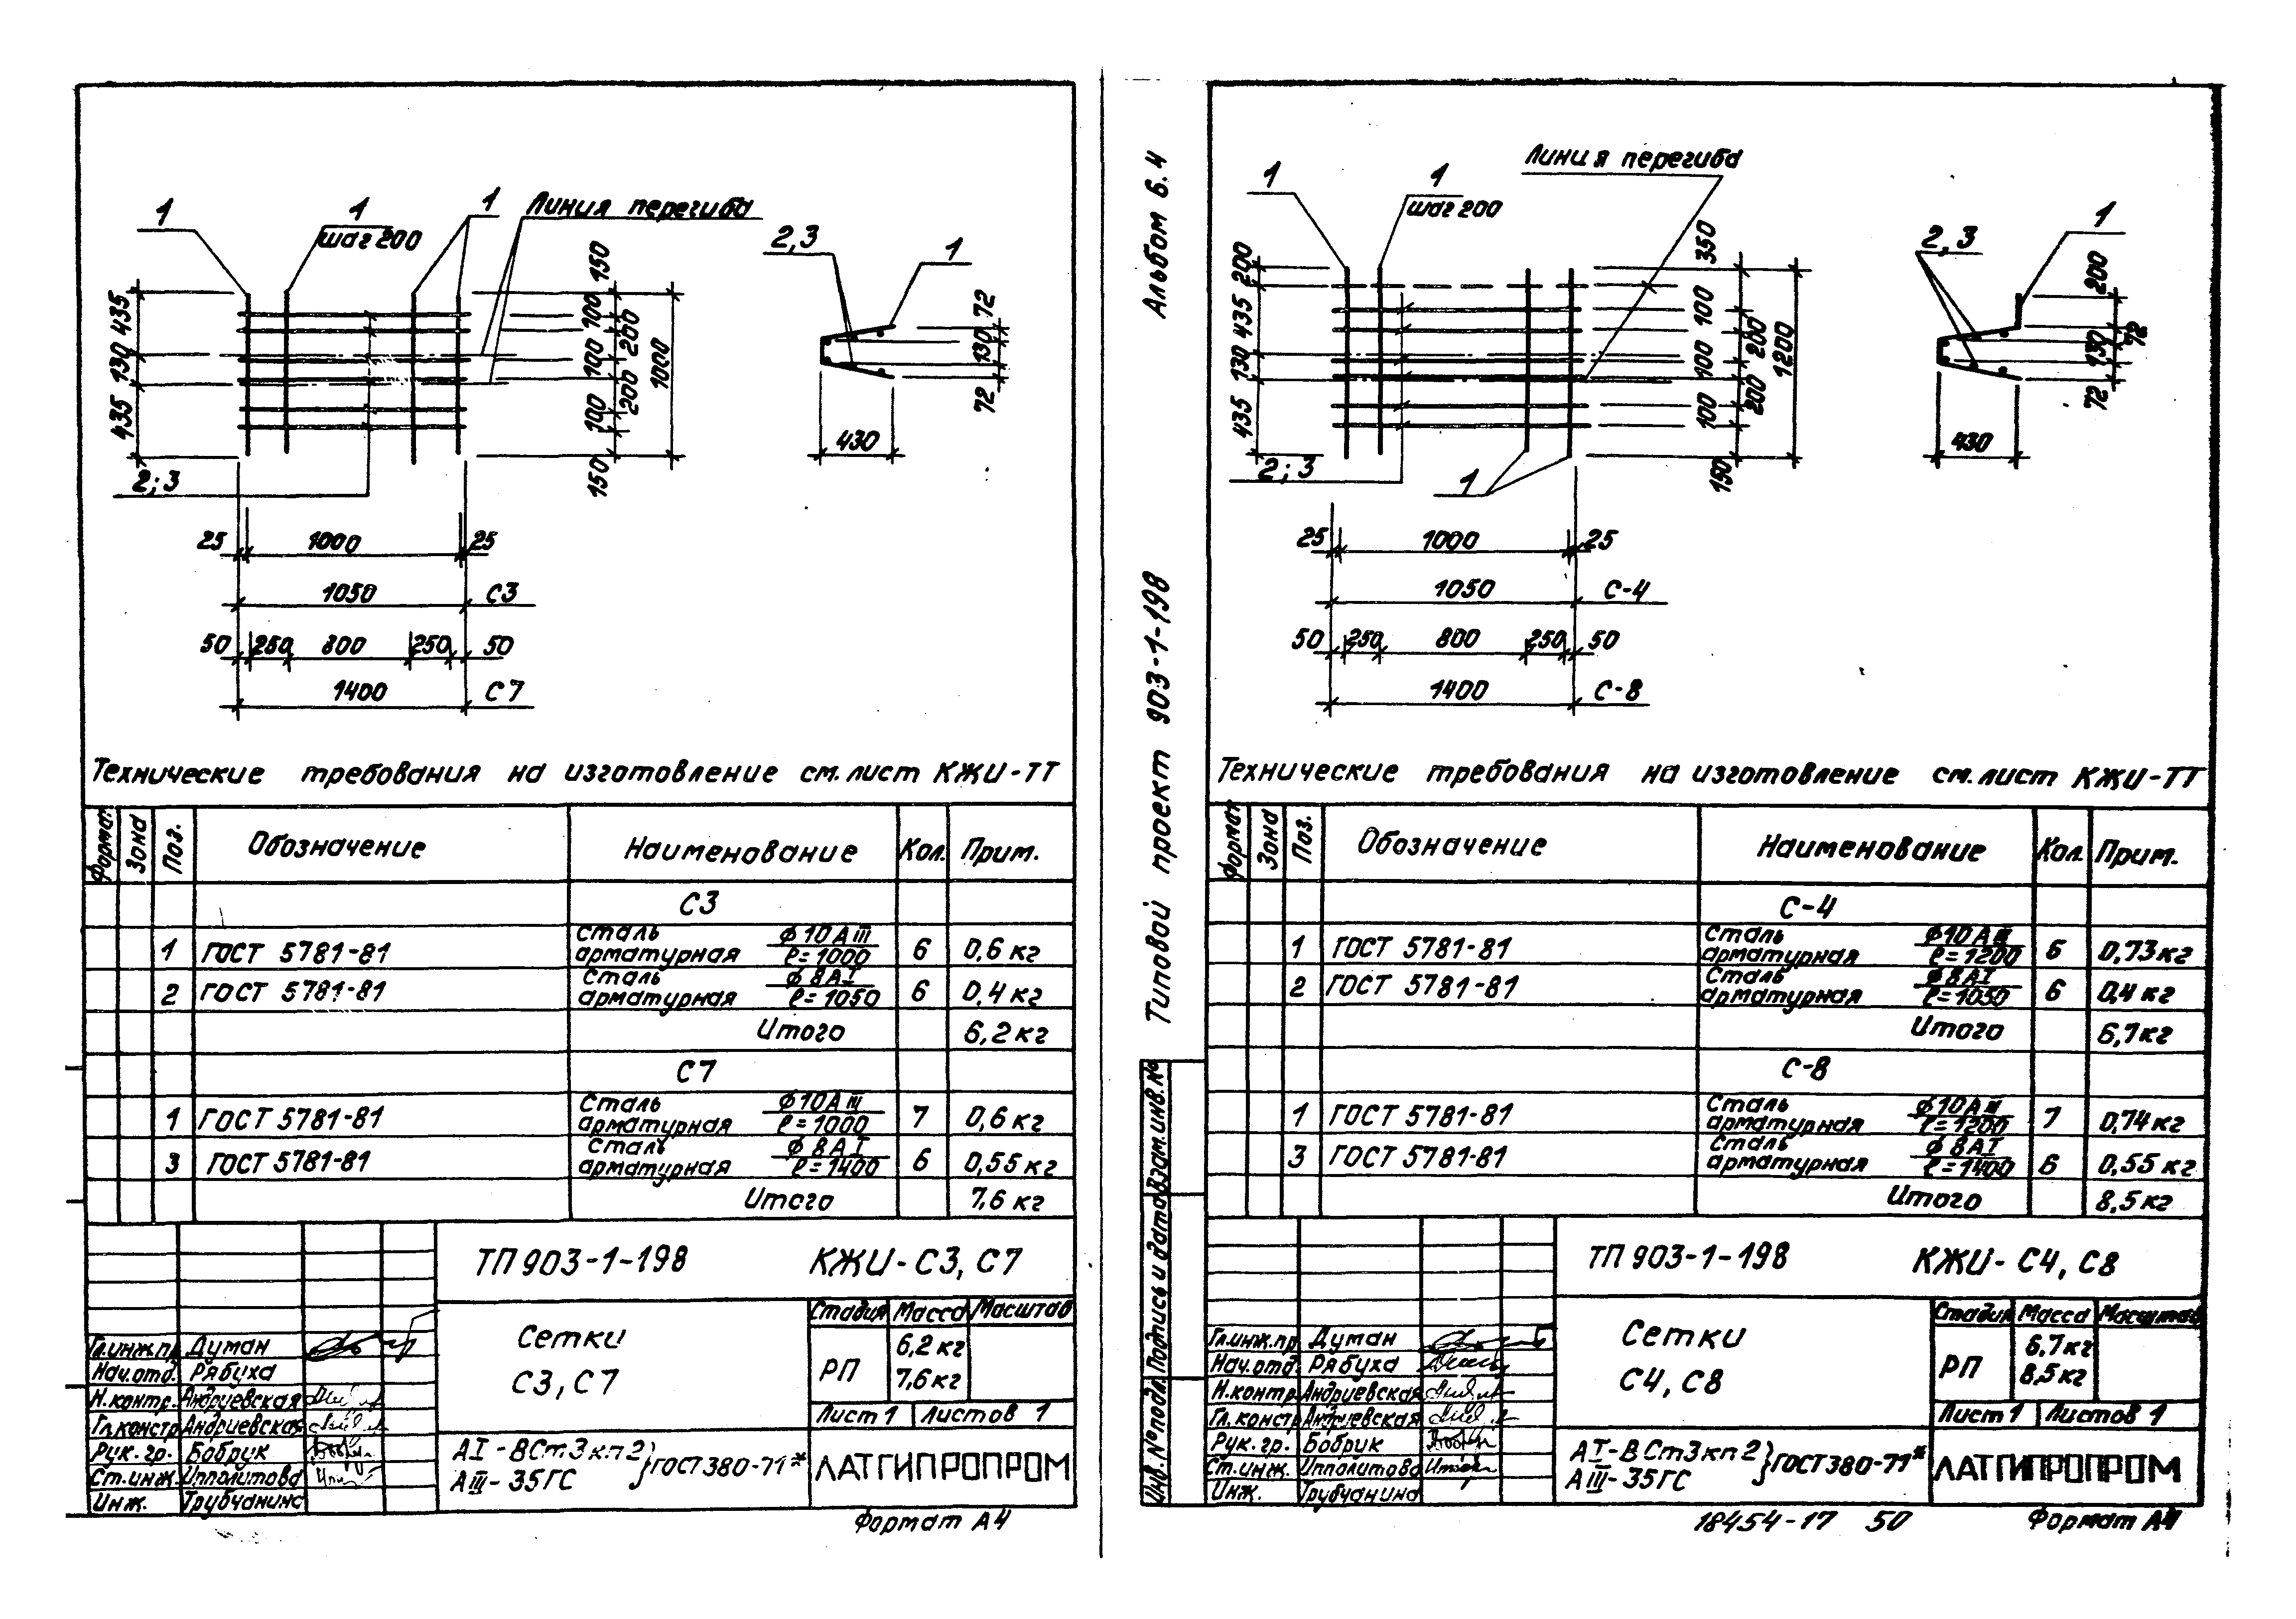 1
1
шаг 200
1
Линия перегиба
435
130
435
150
100
200
100
200
100
150
1000
2; 3
2,3
1
72
130
72
430
25 1000 25
1050 С3
50 250 800 250 50
1400 С7
Технические требования на изготовление см. лист КЖИ-ТТ
Формат Зона Поз. Обозначение Наименование Кол. Прим.
С3
1 ГОСТ 5781-81 Сталь арматурная ϕ10АIII ℓ=1000 6 0,6 кг
2 ГОСТ 5781-81 Сталь арматурная ϕ8АI ℓ=1050 6 0,4 кг
Итого 6,2 кг
С7
1 ГОСТ 5781-81 Сталь арматурная ϕ10АIII ℓ=1000 7 0,6 кг
3 ГОСТ 5781-81 Сталь арматурная ϕ8АI ℓ=1400 6 0,55 кг
Итого 7,6 кг
ТП 903-1-198 КЖИ-С3, С7
Сетки
С3, С7
Стадия Масса Масштаб
РП
6,2 кг
7,6 кг
Лист 1 Листов 1
Гл.инж.пр. Думан
Нач.отд. Рябуха
Н.контр. Андриевская
Гл.констр. Андриевская
Рук.гр. Бобрик
Ст.инж. Ипполитова
Инж. Трубчанина
АI-ВСт3кп2
АIII-35ГС
} ГОСТ 380-71*
ЛАТГИПРОПРОМ
Формат А4
Альбом 6.4
Типовой проект 903-1-198
Инв.№ подл. Подпись и дата Взам.инв.№
1
1
шаг 200
Линия перегиба
200
435
130
435
350
100
200
100
200
100
150
1200
2; 3
1
2,3
1
200
72
130
72
430
25 1000 25
1050 С-4
50 250 800 250 50
1400 С-8
Технические требования на изготовление см. лист КЖИ-ТТ
Формат Зона Поз. Обозначение Наименование Кол. Прим.
С-4
1 ГОСТ 5781-81 Сталь арматурная ϕ10АIII ℓ=1200 6 0,73 кг
2 ГОСТ 5781-81 Сталь арматурная ϕ8АI ℓ=1050 6 0,4 кг
Итого 6,7 кг
С-8
1 ГОСТ 5781-81 Сталь арматурная ϕ10АIII ℓ=1200 7 0,74 кг
3 ГОСТ 5781-81 Сталь арматурная ϕ8АI ℓ=1400 6 0,55 кг
Итого 8,5 кг
ТП 903-1-198 КЖИ-С4, С8
Сетки
С4, С8
Стадия Масса Масштаб
РП
6,7 кг
8,5 кг
Лист 1 Листов 1
Гл.инж.пр. Думан
Нач.отд. Рябуха
Н.контр. Андриевская
Гл.констр. Андриевская
Рук.гр. Бобрик
Ст.инж. Ипполитова
Инж. Трубчанина
АI-ВСт3кп2
АIII-35ГС
} ГОСТ 380-71*
ЛАТГИПРОПРОМ
18454-17 50
Формат А4